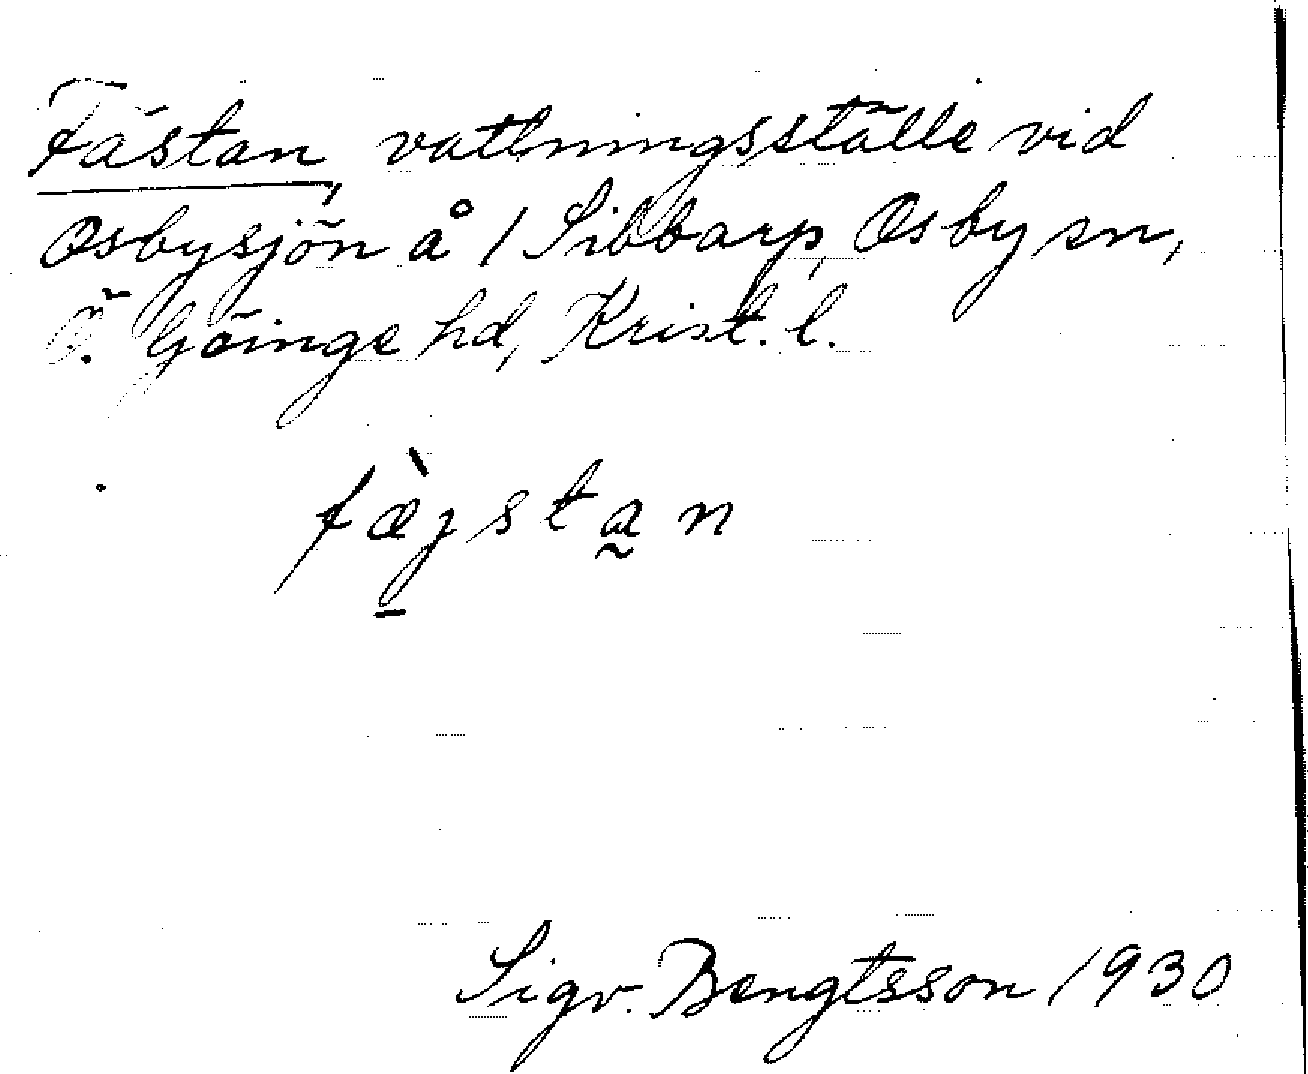 Fästan, vattningsställe vid
Osbysjön å 1 Sibbarp, Osby sn,
Ö. Göinge hd, Krist. l.
fæ̀jsta̰n
Sigv. Bengtsson 1930